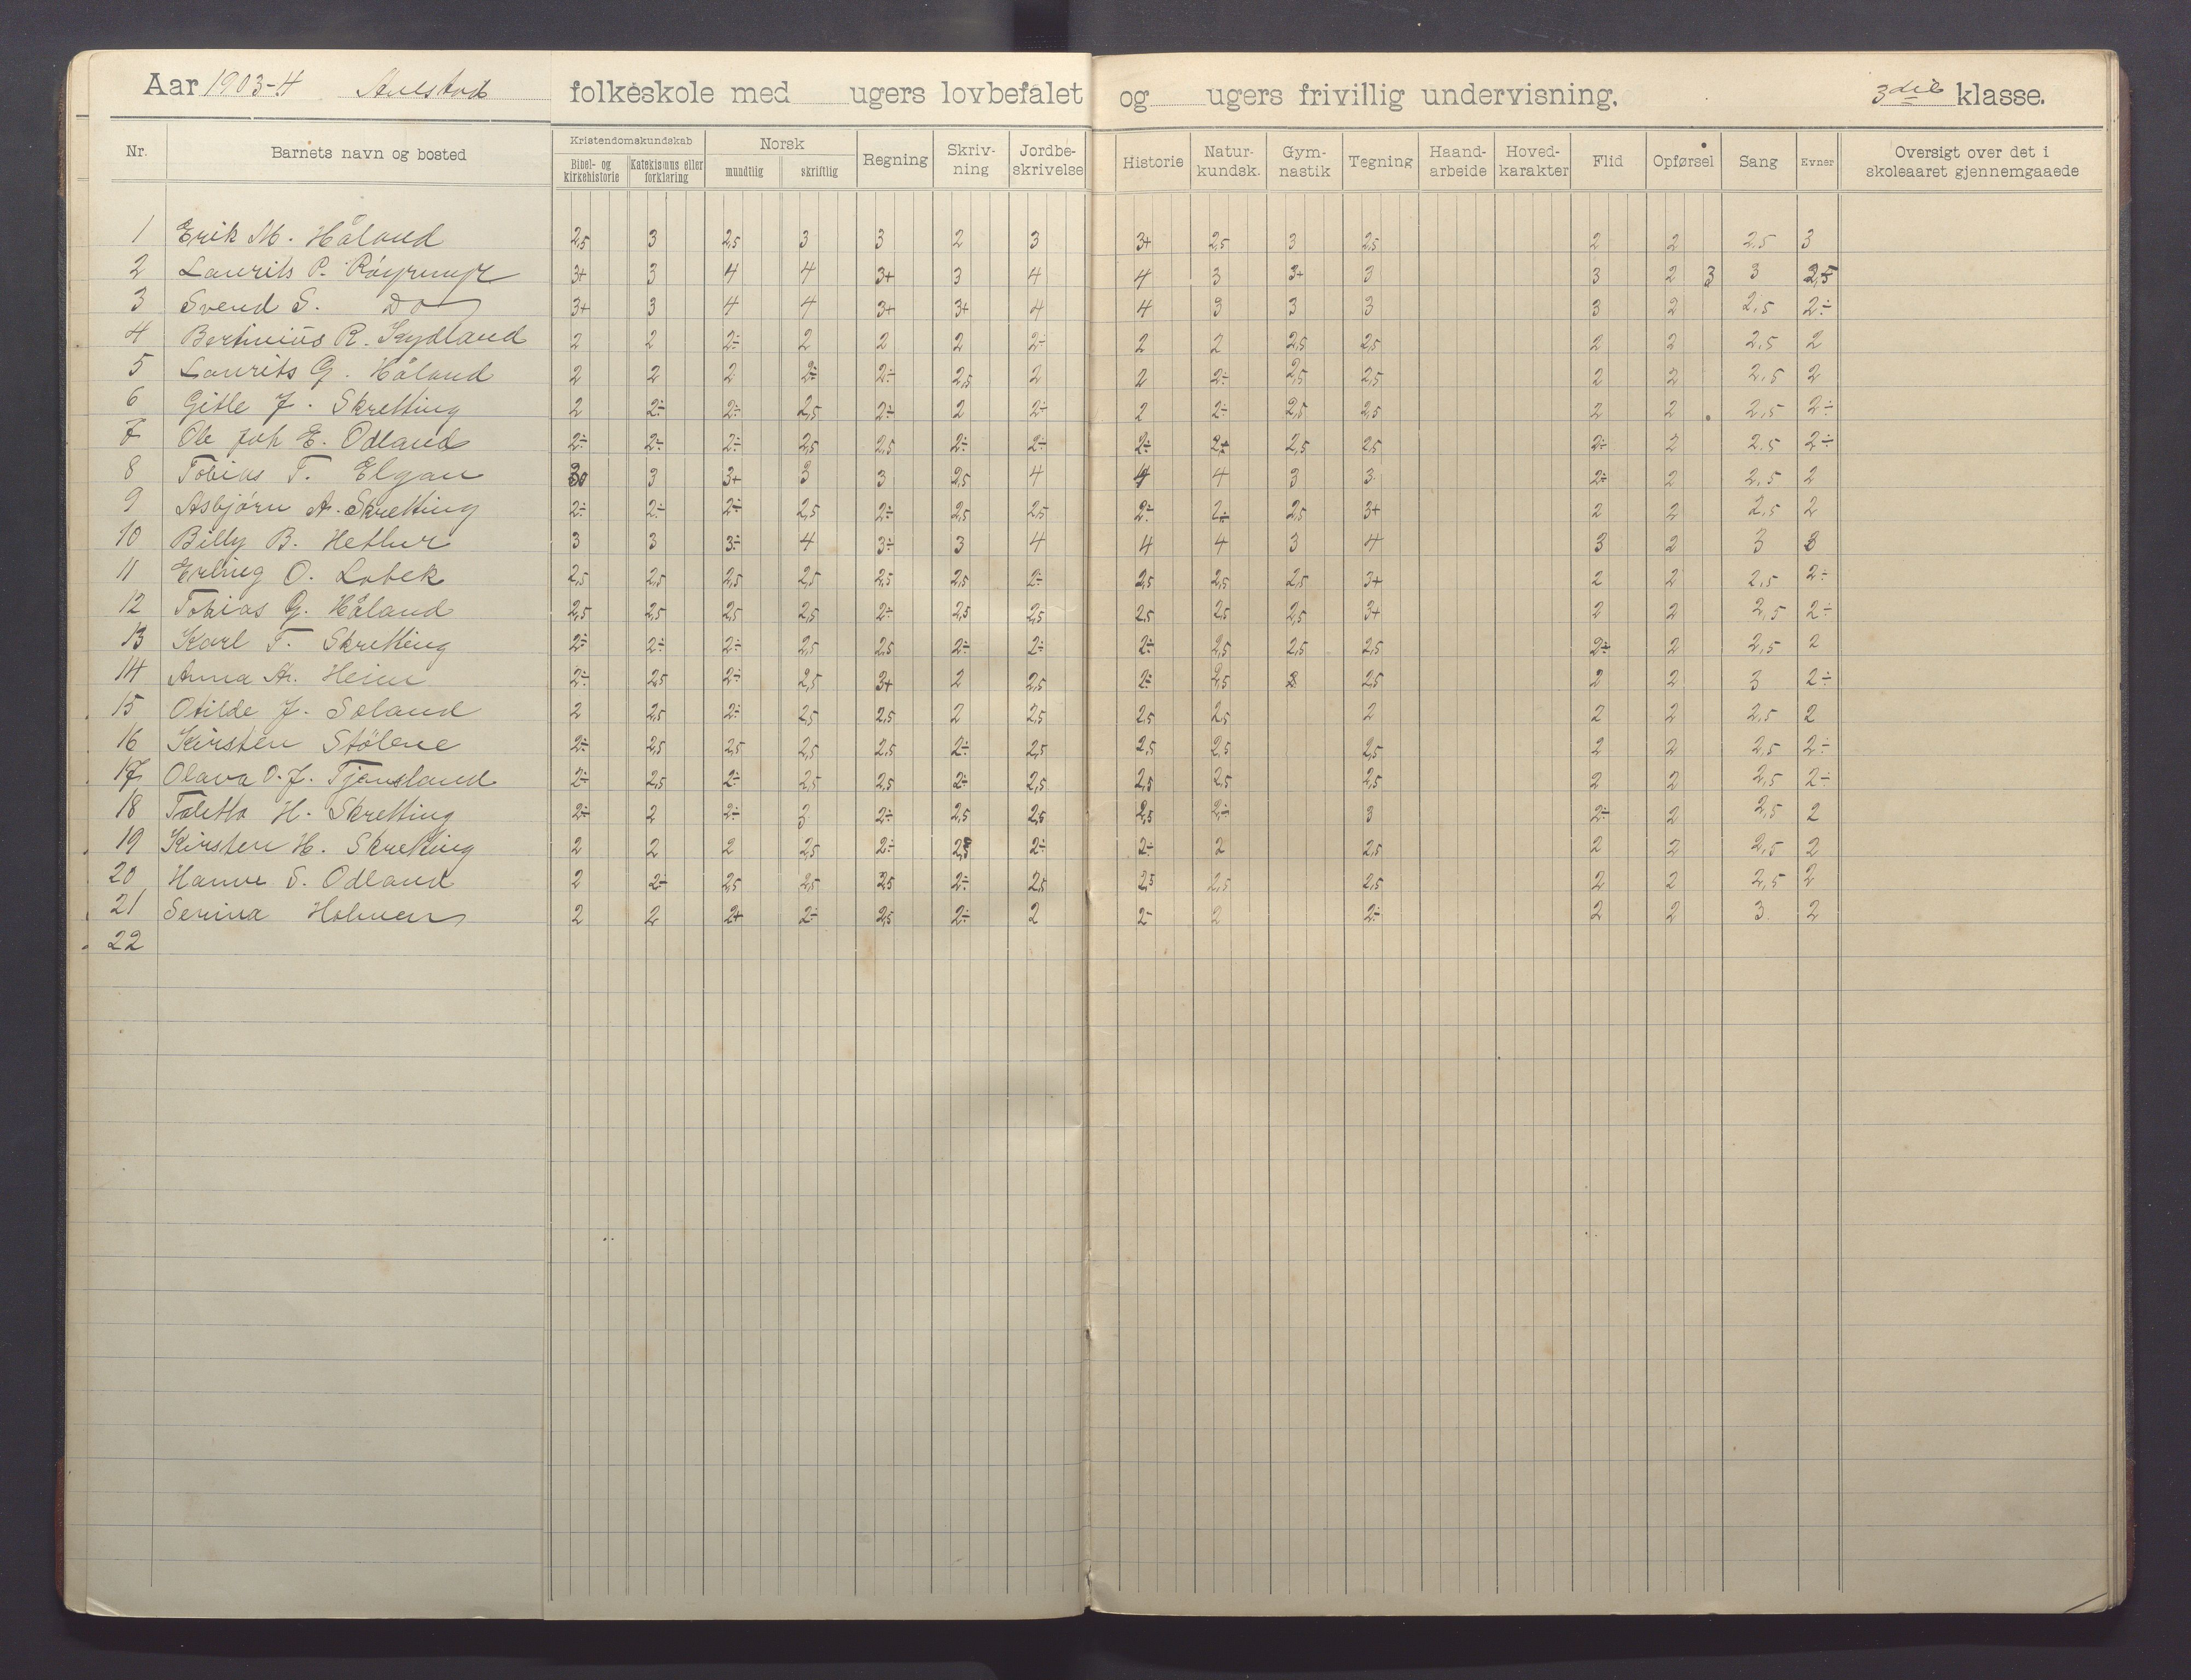 Aar 1903-4 Aulestad folkeskole med ugers lovbefalet og ugers frivillig undervisning. 3die klasse.
Nr. Barnets navn og bosted Kristendomskundskab Bibel- og kirkehistorie Katekismus eller forklaring Norsk mundtlig skriftlig Regning Skriv-ning Jordbe-skrivelse Historie Natur-kundsk. Gym-nastik Tegning Haand-arbeide Hoved-karakter Flid Opførsel Sang Evner Oversigt over det i skoleaaret gjennemgaaede
1 Erik M. Håland 2,5 3 2,5 3 3 2 3 3+ 2,5 3 2,5 2 2 2,5 3
2 Laurits P. Röyrmyr 3+ 3 4 4 3+ 3 4 4 3 3+ 3 3 2 3 3 2,5
3 Svend S. Do 3+ 3 4 4 3+ 3+ 4 4 3 3 3 3 2 2,5 2÷
4 Bertinius R. Kydland 2 2 2÷ 2 2 2 2÷ 2 2 2,5 2,5 2 2 2,5 2
5 Laurits G. Håland 2 2 2 2÷ 2÷ 2,5 2 2 2÷ 2,5 2,5 2 2 2,5 2
6 Gitle J. Skretting 2 2÷ 2÷ 2,5 2÷ 2 2÷ 2 2÷ 2,5 2,5 2 2 2,5 2÷
7 Ole Joh E. Odland 2÷ 2÷ 2÷ 2,5 2,5 2÷ 2÷ 2÷ 2÷ 2,5 2,5 2÷ 2 2.5 2÷
8 Tobias T. Elgan 3 3+ 3 3 2,5 4 4 4 3 3 2÷ 2 2,5 2
9 Asbjørn A. Skretting 2÷ 2÷ 2÷ 2,5 2÷ 2,5 2,5 2÷ 2÷ 2,5 3+ 2 2 2,5 2
10 Billy B. Hetlur 3 3 3÷ 4 3÷ 3 4 4 4 3 4 3 2 3 3
11 Erling O. Lobek 2,5 2,5 2,5 2,5 2,5 2,5 2÷ 2,5 2,5 2,5 3+ 2 2 2,5 2÷
12 Tobias G. Håland 2,5 2,5 2,5 2,5 2÷ 2,5 2,5 2,5 2,5 2,5 3+ 2 2 2,5 2÷
13 Karl T. Skretting 2÷ 2÷ 2÷ 2,5 2,5 2÷ 2÷ 2÷ 2,5 2,5 2,5 2÷ 2 2,5 2
14 Anna A. Heim 2÷ 2,5 2÷ 2,5 3+ 2 2,5 2÷ 2,5 2,5 2 2 3 2÷
15 Otilde J. Soland 2 2,5 2÷ 2,5 2,5 2 2,5 2,5 2,5 2 2 2 2,5 2
16 Kirsten Stölene 2÷ 2,5 2,5 2,5 2,5 2÷ 2,5 2,5 2,5 2,5 2 2 2,5 2÷
17 Olava O. J. Tjensland 2÷ 2,5 2÷ 2,5 2,5 2÷ 2,5 2,5 2,5 2,5 2 2 2,5 2÷
18 Taletta H. Skretting 2÷ 2 2÷ 3 2÷ 2,5 2,5 2,5 2÷ 3 2÷ 2 2,5 2
19 Kirsten H. Skretting 2 2 2 2,5 2÷ 2÷ 2÷ 2 2,5 2 2 2,5 2
20 Hanne S. Odland 2 2÷ 2,5 2,5 2,5 2÷ 2,5 2,5 2,5 2,5 2 2 2,5 2
21 Serina Holmen 2 2 2+ 2÷ 2,5 2÷ 2 2÷ 2 2÷ 2 2 3 2
22